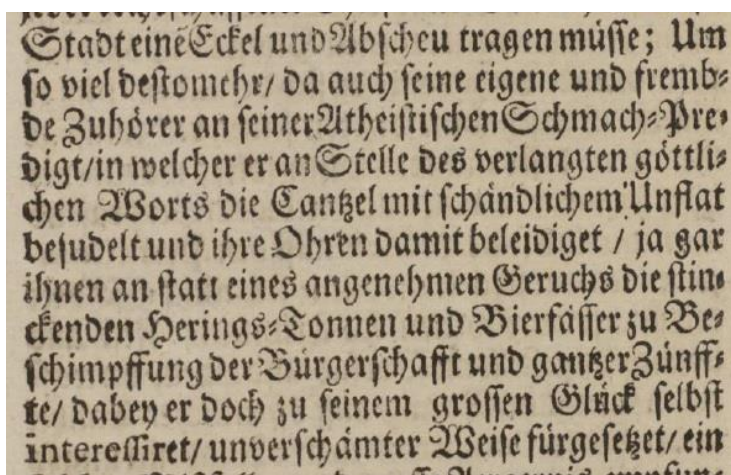 Stadt eine Eckel und Abscheu tragen müsse; Um
so viel destomehr/ da auch seine eigene und fremb-
de Zuhörer an seiner Atheistischen Schmach-Pre-
digt/in welcher er an Stelle des verlangten göttli-
chen Worts die Cantzel mit schändlichem Unflat
besudelt und ihre Ohren damit beleidiget / ja gar
ihnen an statt eines angenehmen Geruchs die stin-
ckenden Herings-Tonnen und Bierfässer zu Be-
schimpffung der Bürgerschafft und gantzer Zünff-
te/ dabey er doch zu seinem grossen Glück selbst
interessiret/ unverschämter Weise fürgesetzet/ ein